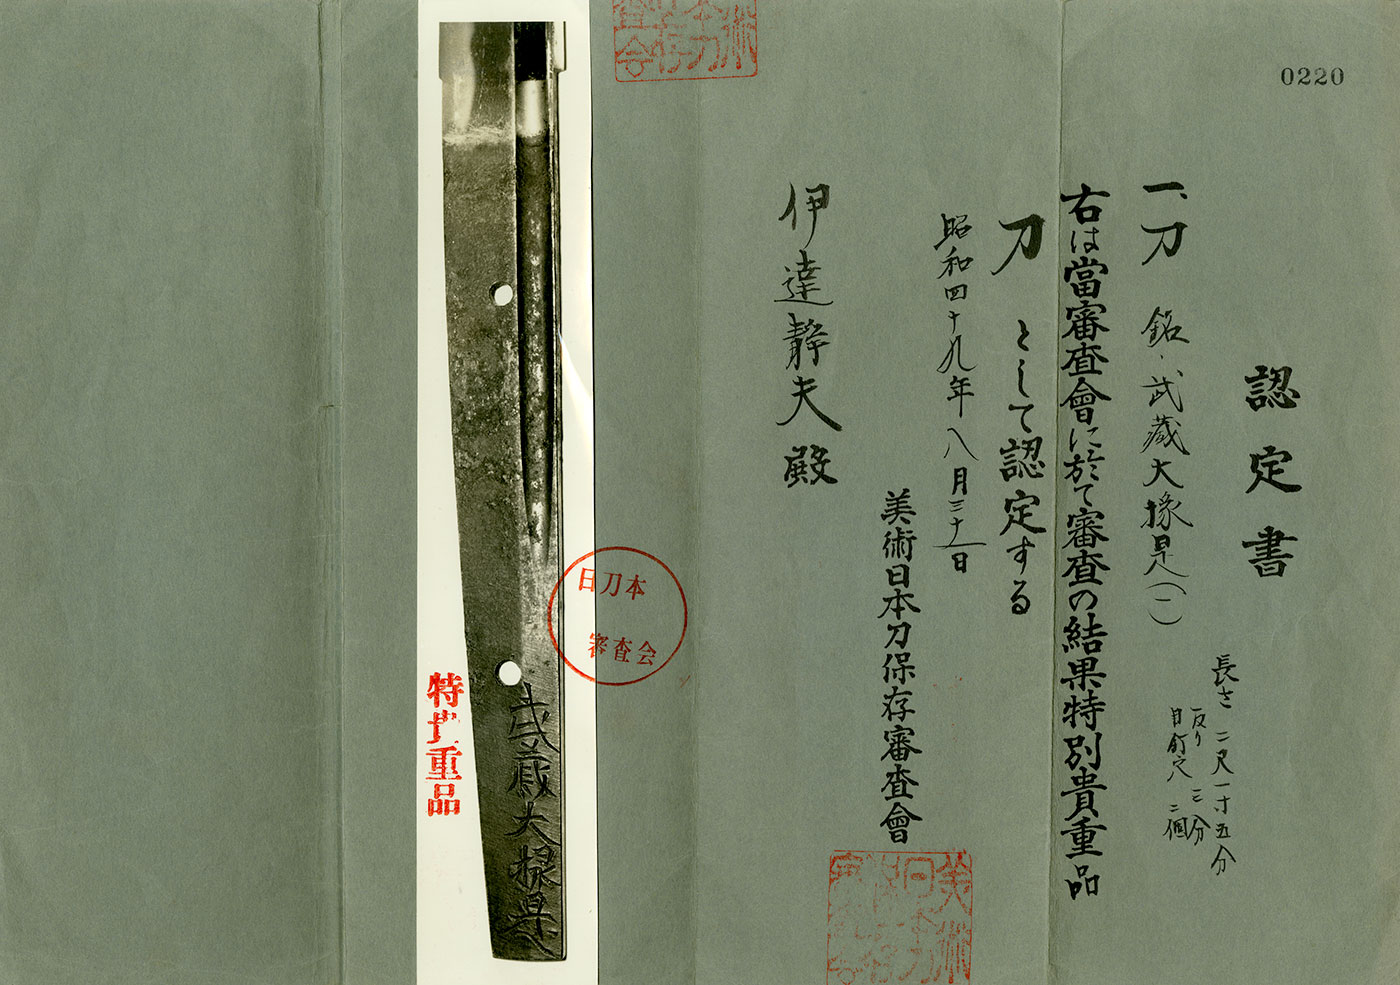 0220
認定書
一、刀 銘、武蔵大掾是(一)
長さ 二尺一寸五分
反り 三分
目釘穴 二個
右は當審査會に於て審査の結果特別貴重品
刀 として認定する
昭和四十九年八月三十一日
美術日本刀保存審査會
伊達靜夫殿
日刀本
審査会
特貴重品
武蔵大掾是